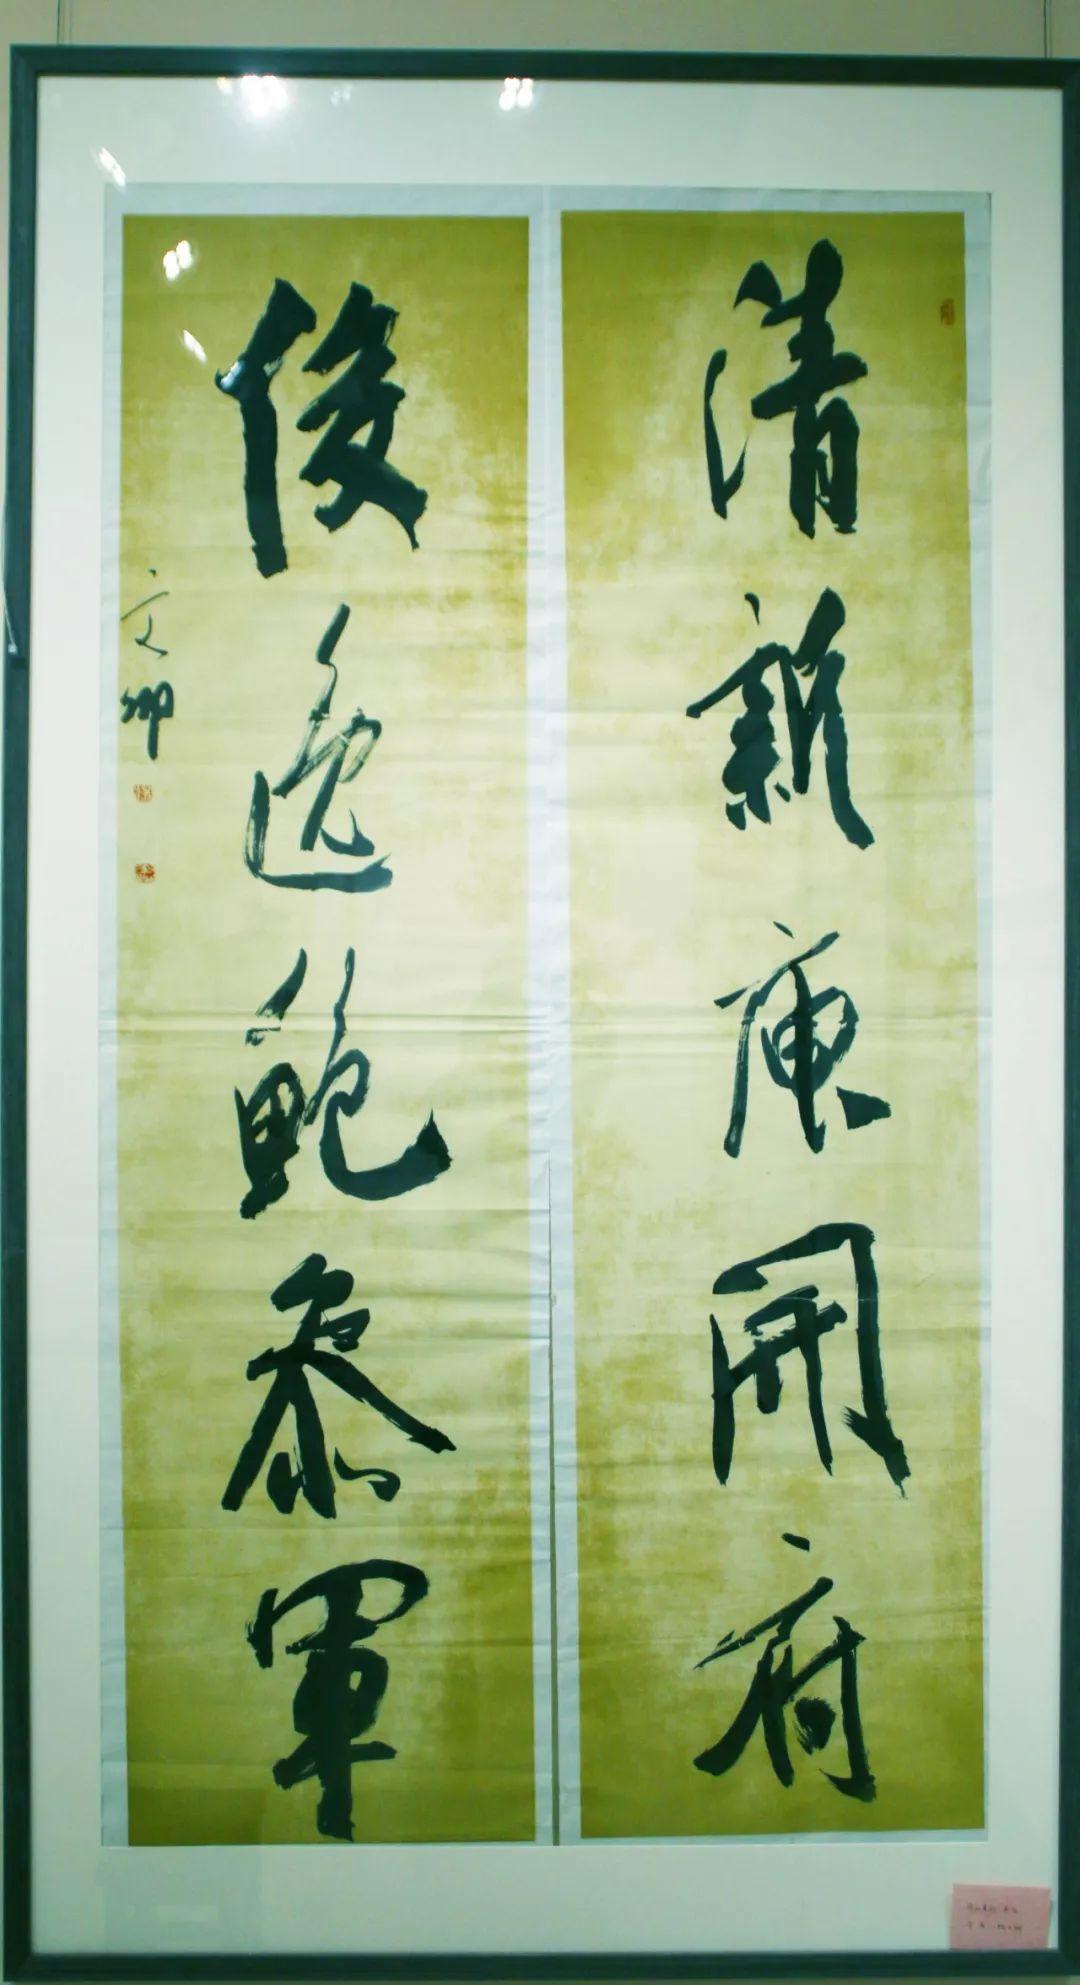 清新庾開府
俊逸鮑參軍
文卿